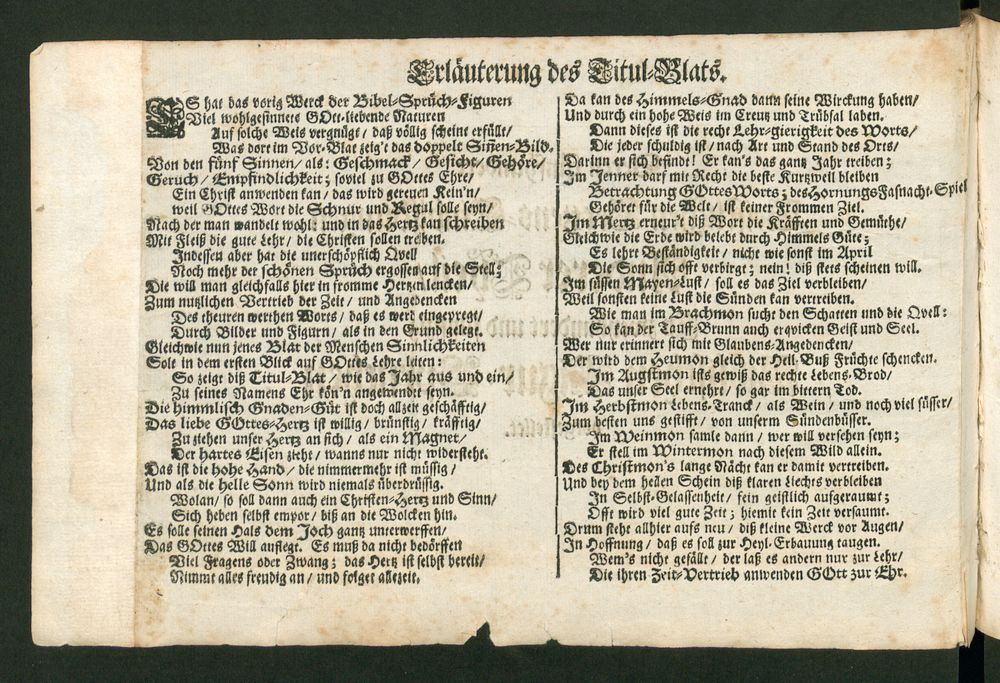 Erläuterung des Titul-Blats.
ES hat das vorig Werck der Bibel-Sprüch-Figuren
Viel wohlgesinnete GOtt-liebende Naturen
Auf solche Weis vergnügt / daß völlig scheint erfüllt /
Was dort im Vor-Blat zeig't das doppelt Sinnen-Bild.
Von den fünf Sinnen / als: Geschmack / Gesicht / Gehöre /
Geruch / Empfindlichkeit; soviel zu GOttes Ehre /
Ein Christ anwenden kan / das wird gereuen Kein'n /
weil GOttes Wort die Schnur und Regul solle seyn /
Nach der man wandelt wohl: und in das Hertz kan schreiben
Mit Fleiß die gute Lehr / die Christen sollen treiben.
Indessen aber hat die unerschöpflich Quell
Noch mehr der schönen Sprüch ergossen auf die Stell;
Die will man gleichfalls hier in fromme Hertzen lencken /
Zum nutzlichen Vertrieb der Zeit / und Angedencken
Des theuren werthen Worts / daß es werd eingepregt /
Durch Bilder und Figurn / als in den Grund gelegt.
Gleichwie nun jenes Blat der Menschen Sinnlichkeiten
Solt in dem ersten Blick auf GOttes Lehre leiten:
So zeigt diß Titul-Blat / wie das Jahr aus und ein /
Zu seines Namens Ehr kön'n angewendet seyn.
Die himmlisch Gnaden-Güt ist doch allzeit geschäfftig /
Das liebe GOttes-Hertz ist willig / brünstig / kräfftig /
Zu ziehen unser Hertz an sich / als ein Magnet /
Der hartes Eisen zieht / wanns nur nicht widersteht.
Das ist die hohe Hand / die nimmermehr ist müssig /
Und als die helle Sonn wird niemals überdrüssig.
Wolan / so soll dann auch ein Christen-Hertz und Sinn /
Sich heben selbst empor / biß an die Wolcken hin.
Es solle seinen Hals dem Joch gantz unterwerffen /
Das GOttes Will auflegt. Es muß da nicht bedörffen
Viel Fragens oder Zwang; das Hertz ist selbst bereit /
Nimmt alles freudig an / und folget allezeit.
Da kan des Himmels-Gnad dann seine Wirckung haben /
Und durch ein hohe Weis im Creutz und Trübsal laben.
Dann dieses ist die recht Lehr-gierigkeit des Worts /
Die jeder schuldig ist / nach Art und Stand des Orts /
Darinn er sich befindt! Er kan's das gantz Jahr treiben;
Im Jenner darf mit Recht die beste Kurtzweil bleiben
Betrachtung GOttes Worts; des Hornungs Fasnacht-Spiel
Gehöret für die Welt / ist keiner Frommen Ziel.
Im Mertz erneur't diß Wort die Kräfften und Gemüthe /
Gleichwie die Erde wird belebt durch Himmels Güte;
Es lehrt Beständigkeit / nicht wie sonst im April
Die Sonn sich offt verbirgt; nein! diß stets scheinen will.
Im süssen Mayen-Lust / soll es das Ziel verbleiben /
Weil sonsten keine Lust die Sünden kan vertreiben.
Wie man im Brachmon sucht den Schatten und die Qvell:
So kan der Tauff-Brunn auch erqvicken Geist und Seel.
Wer nur erinnert sich mit Glaubens-Angedencken /
Der wird dem Heumon gleich der Heil-Buß Früchte schencken.
Im Augstmon ists gewiß das rechte Lebens-Brod /
Das unser Seel ernehrt / so gar im bittern Tod.
Im Herbstmon Lebens-Tranck / als Wein / und noch viel süsser /
Zum besten uns gestifft / von unserm Sündenbüsser.
Im Weinmon samle dann / wer will versehen seyn;
Er stell im Wintermon nach diesem Wild allein.
Des Christmon's lange Nächt kan er damit vertreiben.
Und bey dem hellen Schein diß klaren Liechts verbleiben
In Selbst-Gelassenheit / fein geistlich aufgeraumt;
Offt wird viel gute Zeit; hiemit kein Zeit versaumt.
Drum stehe allhier aufs neu / diß kleine Werck vor Augen /
In Hoffnung / daß es soll zur Heyl-Erbauung taugen.
Wem's nicht gefällt / der laß es andern nur zur Lehr /
Die ihren Zeit-Vertrieb anwenden GOtt zur Ehr.